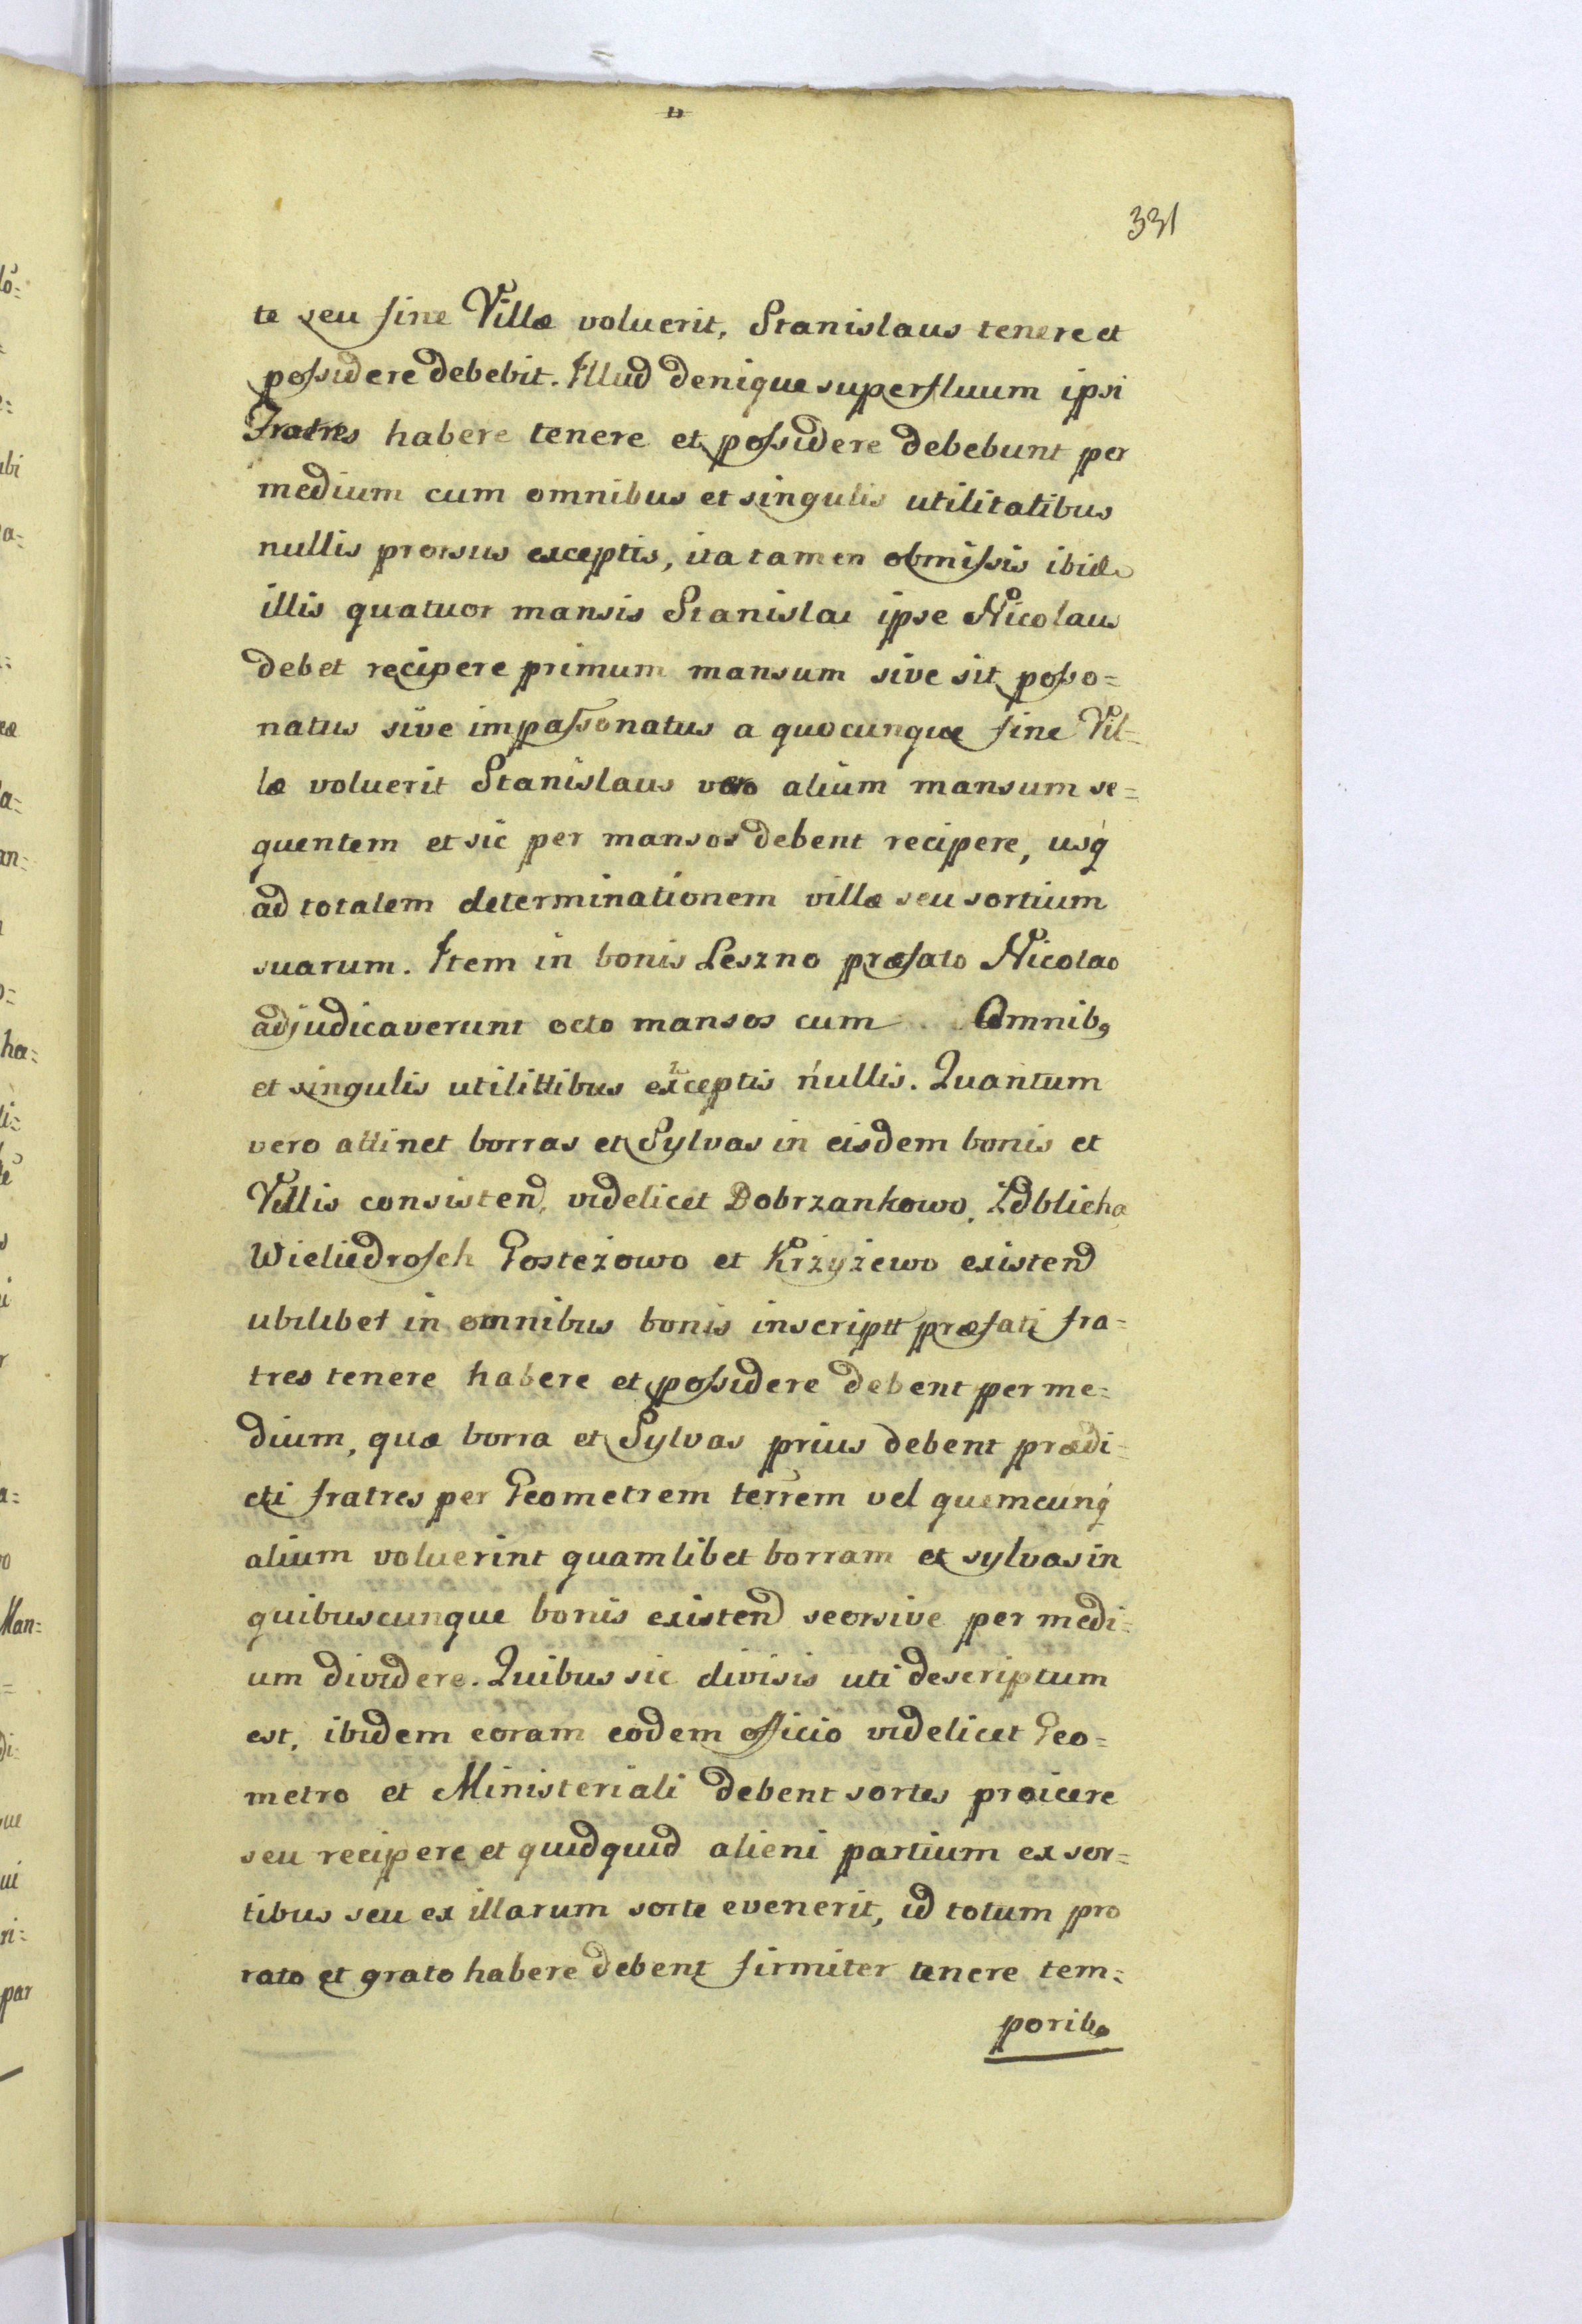 331
te seu fine Villæ voluerit, Stanislaus tenere et
possidere debebit. Illud denique superfluum ipsi
Fratres habere tenere et possidere debebunt per
medium cum omnibus et singulis utilitatibus
nullis prorsus exceptis, ita tamen obmissis ibide
illis quatuor mansis Stanislai ipse Nicolaus
debet recipere primum mansum sive sit posso=
natus sive impassonatus a quocunque fine Vil=
læ voluerit Stanislaus vero alium mansum se=
quentem et sic per mansos debent recipere, usq́
ad totalem determinationem villæ seu sortium
suarum. Item in bonis Leszno præfato Nicolao
adjudicaverunt octo mansos cum Omnibꝯ
et singulis utilittibus exceptis nullis. Quantum
vero attinet borras et Sylvas in eisdem bonis et
Villis consisten, videlicet Dobrzankowo, Zdblicha
Wieliedrosch Gosteżowo et Krzyżewo existen
ubilibet in omnibus bonis inscriptt præfati fra=
tres tenere habere et possidere debent per me=
dium, quæ borra et Sylvas prius debent prædi=
cti fratres per Geometrem terrem vel quemcunq́
alium voluerint quamlibet borram et sylvas in
quibuscunque bonis existen seorsive per medi=
um dividere. Quibus sic divisis uti descriptum
est, ibidem coram eodem officio videlicet Geo=
metro et Ministeriali debent sortes proicere
seu recipere et quidquid alieni partium ex sor=
tibus seu ex illarum sorte evenerit, id totum pro
rato et grato habere debent firmiter tenere tem=
poribꝯ